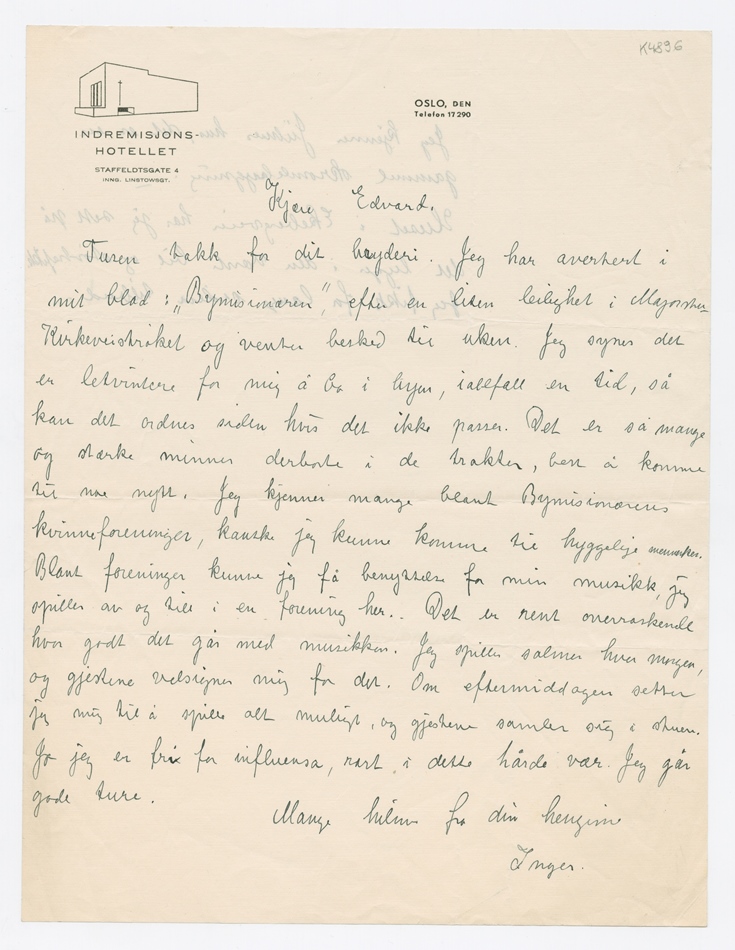 K4896
OSLO, DEN
Telefon 17290
INDREMISJONS-
HOTELLET
STAFFELDTSGATE 4
INNG. LINSTOWSGT.
Kjære Edvard.
Tusen takk for dit bryderi. Jeg har avertert i
mit blad: "Bymisionæren", efter en liten leilighet i Majorstu-
Kirkeveistrøket og venter besked til uken. Jeg synes det
er letvintere for mig å bo i byen, iallfall en tid, så
kan det ordnes siden hvis det ikke passer. Det er så mange
og stærke minner derborte i de trakter, best å komme
til noe nytt. Jeg kjenner mange blant Bymisionærens
kvinneforeninger, kanske jeg kunne komme til hyggelige mennesker.
Blant foreninger kunne jeg få benyttelse for min musikk, jeg
spiller av og till i en forening her. Det er rent overraskende
hvor godt det går med musikken. Jeg spiller salmer hver morgen,
og gjestene velsigner mig for det. Om eftermiddagen setter
jeg mig til å spille alt muligt, og gjestene samler sig i stuen.
Ja jeg er fri for influensa, rart i dette hårde vær. Jeg går
gode ture.
Mange hilsner fra din hengivne
Inger.